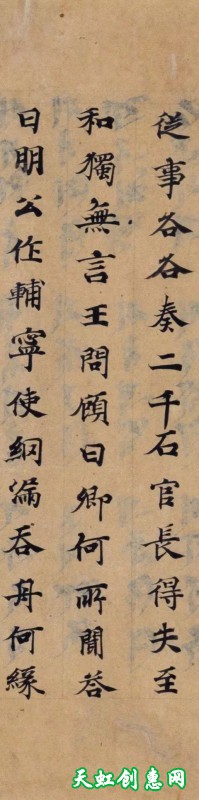 從事各各奏二千石官長得失至
和獨無言王問顧曰卿何所聞答
曰明公作輔寧使網漏吞舟何緣
天虹创惠网